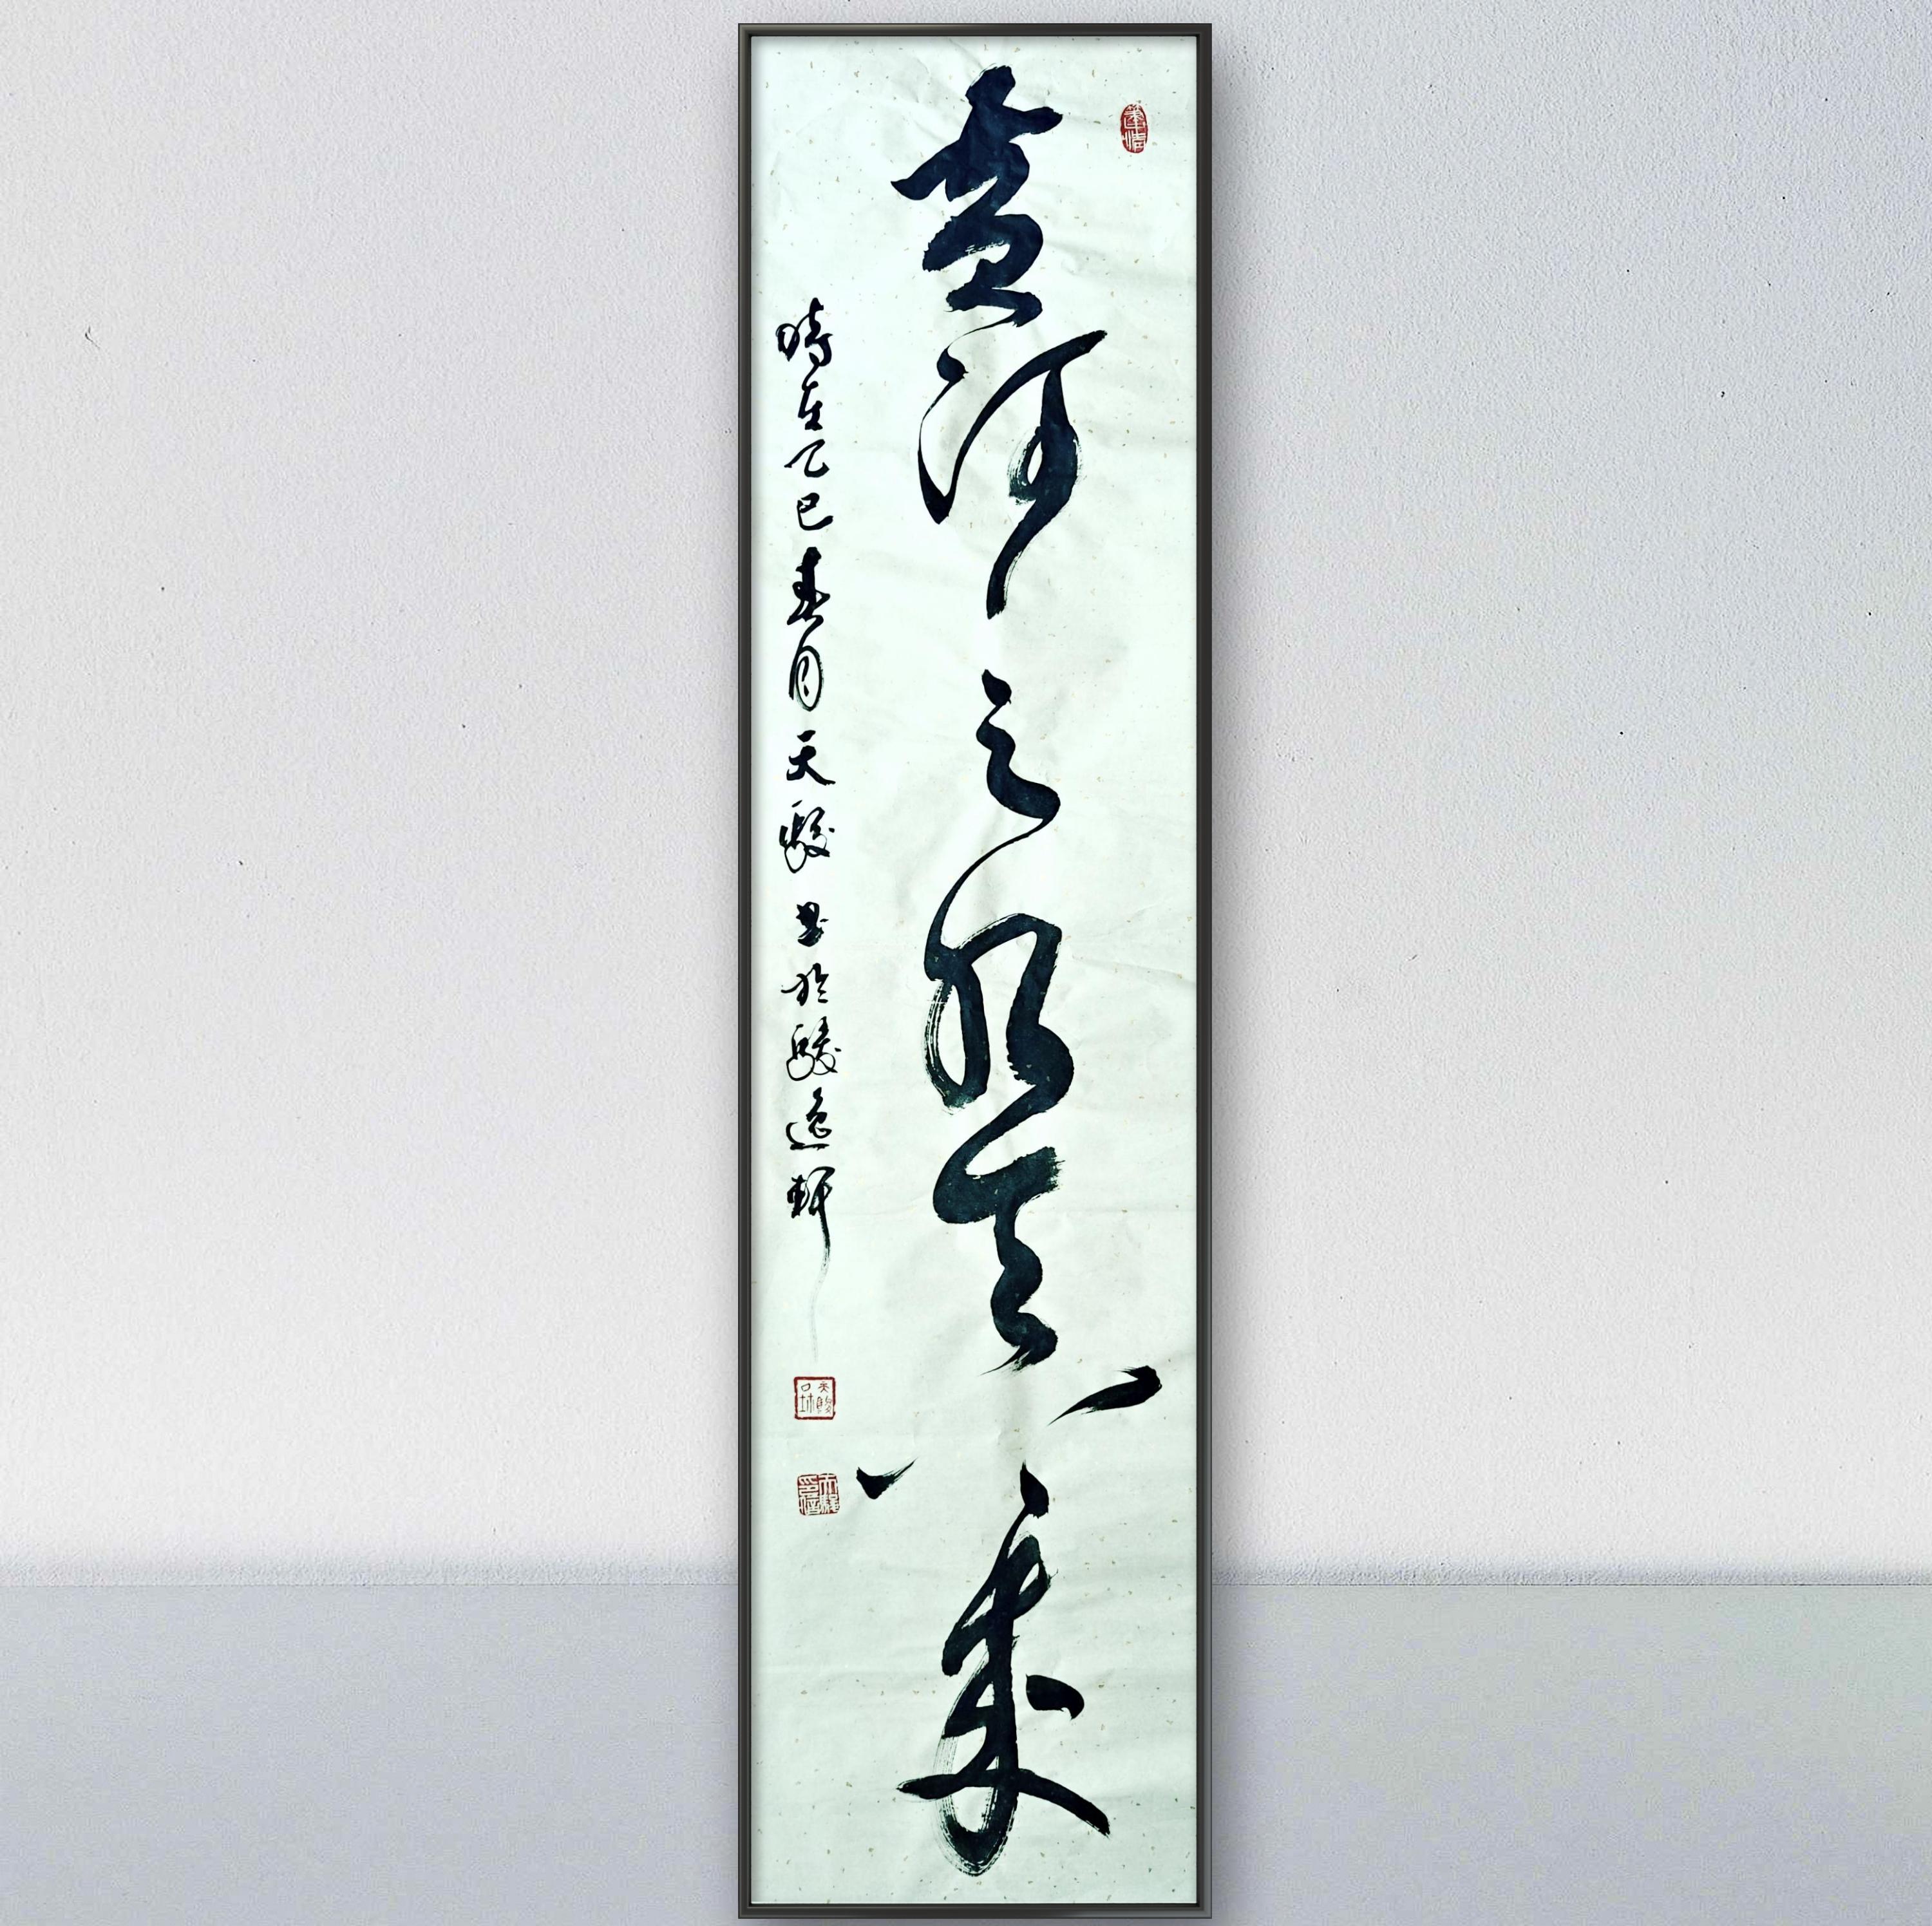 黄河之水天上來
時在乙巳春月天駿書於駿逸軒